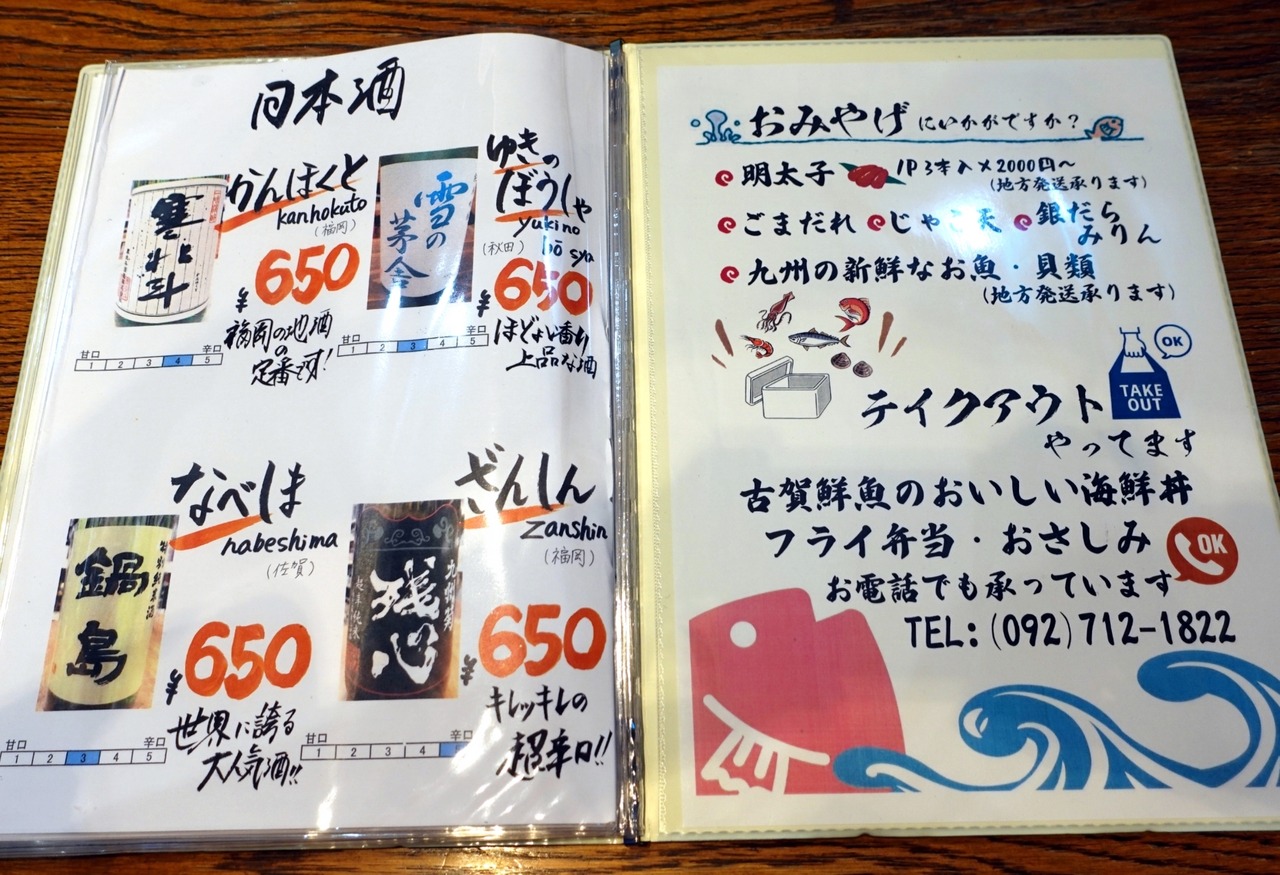 日本酒
寒北斗
かんほくと
kanhokuto
(福岡)
¥650
福岡の地酒
の
定番です!
甘口 辛口
1 2 3 4 5
雪の
茅舎
ゆきの
ぼうしゃ
yukino
bō sya
(秋田)
¥650
ほどよい香り
上品なお酒
1 2 3 4 5
鍋
島
なべしま
nabeshima
(佐賀)
¥650
世界に誇る
大人気酒!!
甘口 辛口
1 2 3 4 5
残心
ざんしん
zanshin
(福岡)
¥650
キレッキレの
超辛口!!
甘口 辛口
1 2 3 4 5
おみやげにいかがですか?
明太子 1P3本入×2000円~
(地方発送承ります)
ごまだれ じゃこ天 銀だら
みりん
九州の新鮮なお魚・貝類
(地方発送承ります)
OK
TAKE
OUT
テイクアウト
やってます
古賀鮮魚のおいしい海鮮丼
フライ弁当・おさしみ
OK
お電話でも承っています
TEL:(092)712-1822